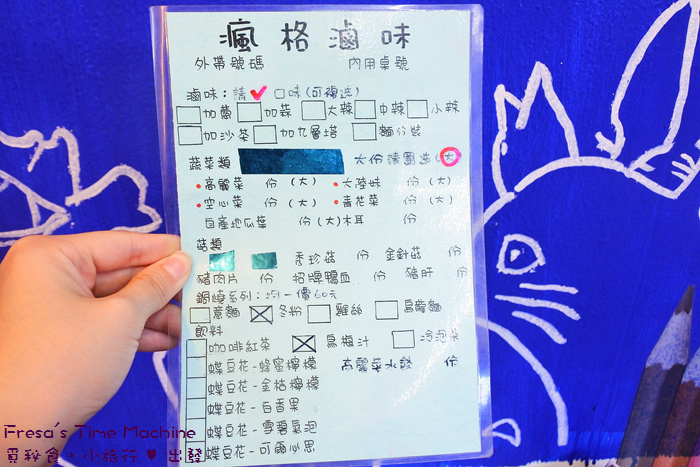 瘋格滷味
外帶號碼 內用桌號
滷味：請✓口味(可複選)
加蔥 加蒜 大辣 中辣 小辣
加沙茶 加九層塔 麵分裝
蔬菜類 大份請圈選(大)
高麗菜 份(大) 大陸妹 份(大)
空心菜 份(大) 青花菜 份(大)
自產地瓜葉 份(大)木耳 份
菇類
秀珍菇 份 金針菇 份
豬肉片 份 招牌鴨血 份 豬肝 份
鍋燒系列：均一價60元
意麵 冬粉 雞絲 烏龍麵
飲料
咖啡紅茶 烏梅汁 冷泡茶
蝶豆花-蜂蜜檸檬 高麗菜水餃 份
蝶豆花-金桔檸檬
蝶豆花-百香果
蝶豆花-雪碧氣泡
蝶豆花-可爾必思
Fresa's Time Machine
覓秘食・小旅行♥出發